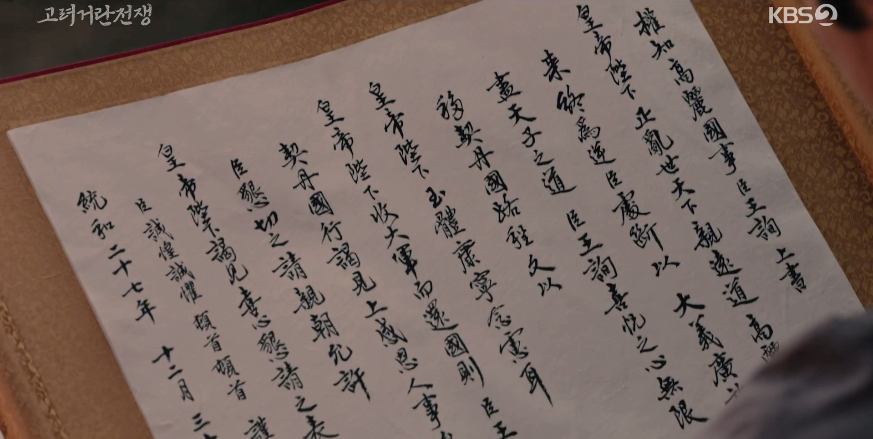 고려거란전쟁
KBS2
權知高麗國事臣王詢 上書
皇帝陛下正亂世天下親遠道高
來終爲逆臣處斷以 大義廣
盡天子之道 臣王詢喜悅之心無限
移契丹國路程久以
皇帝陛下玉體康寧念慮耳
皇帝陛下收大軍而還國則 臣王
契丹國行謁見上感恩人事
臣懇切之請親朝允許
皇帝陛下謁見喜心懇請之表
臣誠惶誠懼頓首頓首 謹
統和二十七年 十二月 三